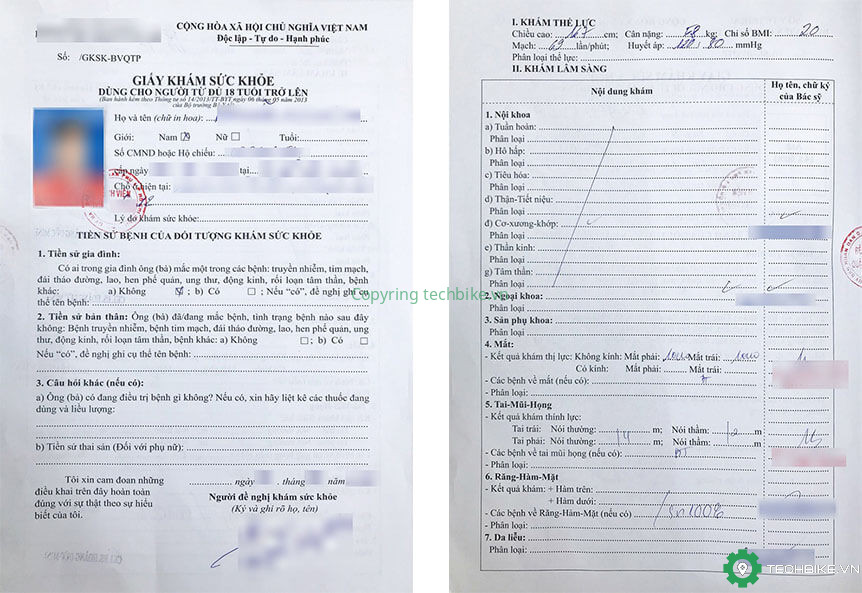 CỘNG HÒA XÃ HỘI CHỦ NGHĨA VIỆT NAM
Độc lập - Tự do - Hạnh phúc
Số: /GKSK-BVQTP
GIẤY KHÁM SỨC KHỎE
DÙNG CHO NGƯỜI TỪ ĐỦ 18 TUỔI TRỞ LÊN
(Ban hành kèm theo Thông tư số 14/2013/TT-BYT ngày 06 tháng 05 năm 2013
của Bộ trưởng Bộ Y tế)
Họ và tên (chữ in hoa):
Giới: Nam Nữ Tuổi:
Số CMND hoặc Hộ chiếu:
cấp ngày tại
Chỗ ở hiện tại:
Lý do khám sức khỏe:
TIỀN SỬ BỆNH CỦA ĐỐI TƯỢNG KHÁM SỨC KHỎE
1. Tiền sử gia đình:
Có ai trong gia đình ông (bà) mắc một trong các bệnh: truyền nhiễm, tim mạch,
đái tháo đường, lao, hen phế quản, ung thư, động kinh, rối loạn tâm thần, bệnh
khác: a) Không ; b) Có ; Nếu “có”, đề nghị ghi cụ
thể tên bệnh:
2. Tiền sử bản thân: Ông (bà) đã/đang mắc bệnh, tình trạng bệnh nào sau đây
không: Bệnh truyền nhiễm, bệnh tim mạch, đái tháo đường, lao, hen phế quản, ung
thư, động kinh, rối loạn tâm thần, bệnh khác: a) Không ; b) Có
Nếu “có”, đề nghị ghi cụ thể tên bệnh:
3. Câu hỏi khác (nếu có):
a) Ông (bà) có đang điều trị bệnh gì không? Nếu có, xin hãy liệt kê các thuốc đang
dùng và liều lượng:
b) Tiền sử thai sản (Đối với phụ nữ):
Tôi xin cam đoan những
điều khai trên đây hoàn toàn
đúng với sự thật theo sự hiểu
biết của tôi.
ngày tháng năm
Người đề nghị khám sức khỏe
(Ký và ghi rõ họ, tên)
I. KHÁM THỂ LỰC
Chiều cao: 167 cm; Cân nặng: 58 kg; Chỉ số BMI: 20
Mạch: 69 lần/phút; Huyết áp: 120/80 mmHg
Phân loại thể lực:
II. KHÁM LÂM SÀNG
Nội dung khám
Họ tên, chữ ký
của Bác sỹ
1. Nội khoa
a) Tuần hoàn:
Phân loại
b) Hô hấp:
Phân loại
c) Tiêu hóa:
Phân loại
d) Thận-Tiết niệu:
Phân loại
đ) Cơ-xương-khớp:
Phân loại
e) Thần kinh:
Phân loại
g) Tâm thần:
Phân loại
2. Ngoại khoa:
Phân loại
3. Sản phụ khoa:
Phân loại
4. Mắt:
- Kết quả khám thị lực: Không kính: Mắt phải: 10/10 Mắt trái: 10/10
Có kính: Mắt phải: Mắt trái:
- Các bệnh về mắt (nếu có):
- Phân loại:
5. Tai-Mũi-Họng
- Kết quả khám thính lực:
Tai trái: Nói thường: m; Nói thầm: m
Tai phải: Nói thường: m; Nói thầm: m
- Các bệnh về tai mũi họng (nếu có): BT
- Phân loại:
6. Răng-Hàm-Mặt
- Kết quả khám: + Hàm trên:
+ Hàm dưới:
- Các bệnh về Răng-Hàm-Mặt (nếu có)
- Phân loại:
7. Da liễu:
Phân loại:
Copyring techbike.vn
TECHBIKE.VN